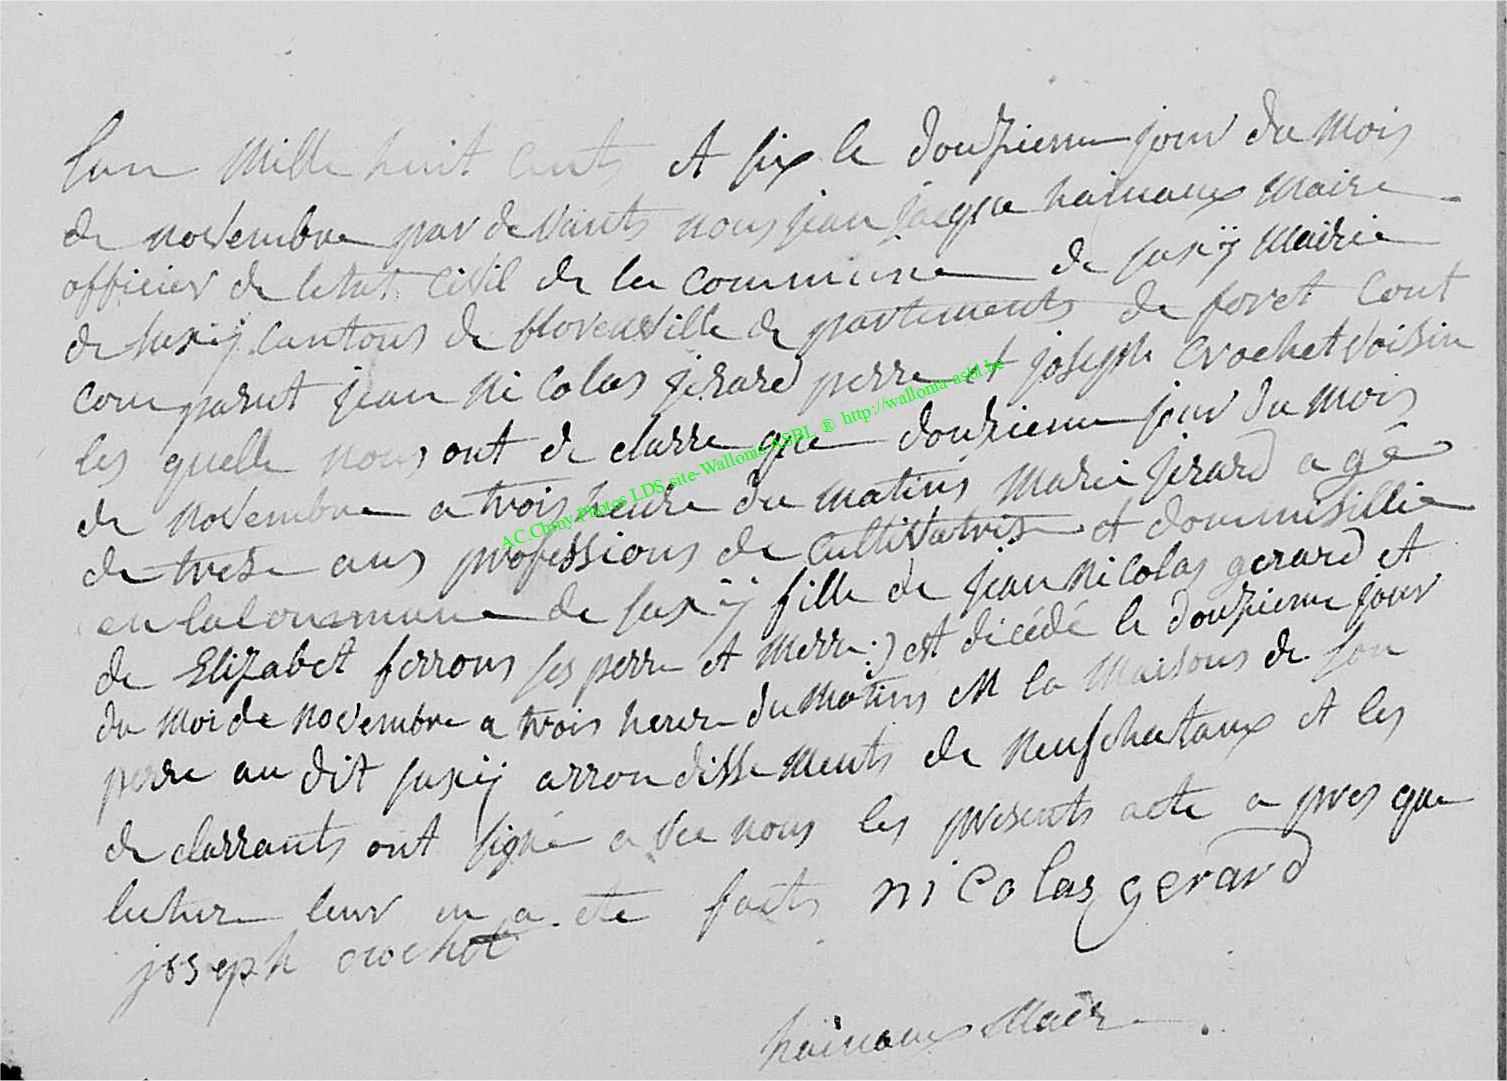 Lan mille huit cents et six le douzieme jour du mois
de novembre par devants nous jean jacque hainaux maire
officier de letat civil de la commune de jusÿ mairie
de jusÿ cantons de florenville de partements de foret cont
comparut jean nicolas jerard perre et joseph crochet voisin
les quelle nous ont de clarre que douzieme jour du mois
de novembre a trois heure du matins marie jerard agé
de treze ans professions de cultivatrise et dommisillie
en la commune de jusÿ fille de jean nicolas gerard et
de Elizabet ferrons ses perre et merre :) est dicédé le douzieme jour
du moi de novembre a trois heure du matins en la maisons de son
perre au dit jusÿ arrondissements de neufchataux et les
de clarrants ont signé avec nous les presents acte a pres que
lecture leur en a ete faits nicolas gerard
joseph crochet
hainaux Maire
AC Chiny Photos LDS site-Wallonia ASBL ® http://wallonia-asbl.be